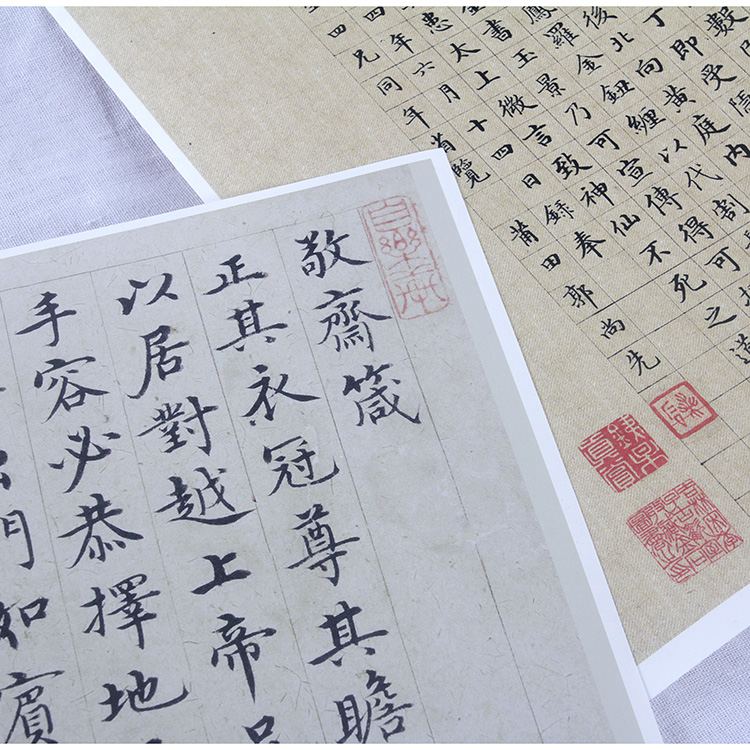 敬齋箴
正其衣冠尊其瞻
以居對越上帝
手容必恭擇地
門如賓
數
丁即受
後北向黃庭內
鳳羅金鈕纏以代割
書玉景乃可宣傳得可
太上微言致神仙不死之道
四年六月十四日錄奉
四兄同年覽莆田郭尚先